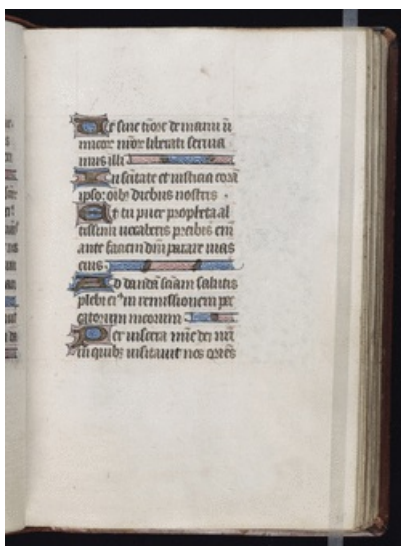 Ut sine tiōre de manu in
micor nr̄or liberati servia
mus illi
In sc̄itate et iusticia corā
ipso: oīb; diebus nostris .
Et tu puer propheta al
tissimi vocaberis preibis em̄
ante faciem dn̄i parare vias
eius
Ad dandā sciam̄ salutis
plebi eiꝰ in remissionem pec
catorum meorum
Per viscera mīe dei nr̄i
in quib; visitavit nos oriēs